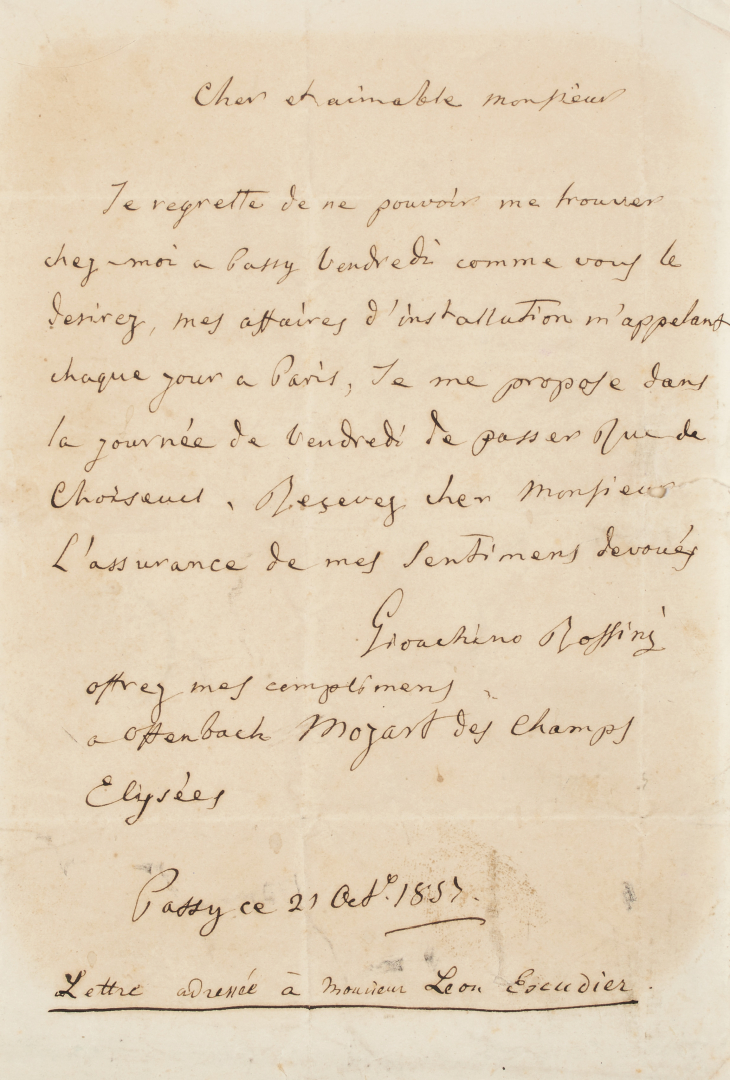 Cher et aimable monsieur
Je regrette de ne pouvoir me trouver
chez-moi a Passy Vendredi comme vous le
desirez, mes affaires d'installation m'appelant
chaque jour a Paris, Je me propose dans
la journée de Vendredi de passer Rue de
Choiseuil, Reçevez cher Monsieur
L'assurance de mes Sentimens devoués
Gioachino Rossini
offrez mes complimens
a Offenbach Mozart des Champs
Elysées
Passy ce 21 Octe. 1857.
Lettre adressée à Monsieur Leon Escudier.